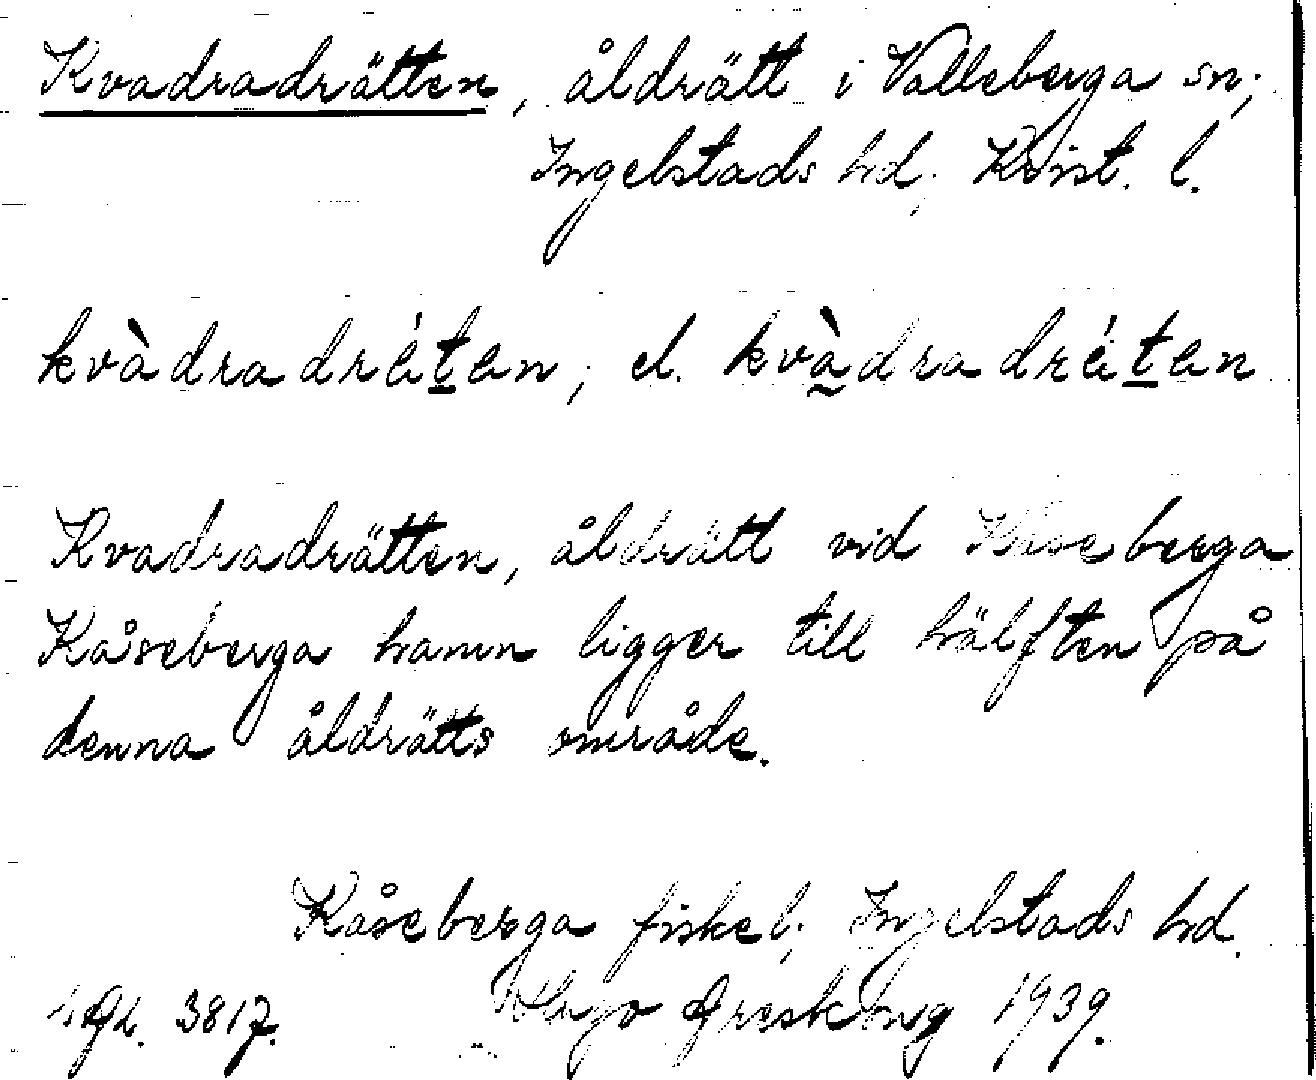 Kvadradrätten, åldrätt i Valleberga sn;
Ingelstads hd; Krist. l.
kvàdradrätan; el. kvàdradrätan
Kvadradrätten, åldrätt vid Kåseberga
Kåseberga hamn ligger till hälften på
denna åldrätts område.
Kåseberga fiskel; Ingelstads hd.
3817. 1939.